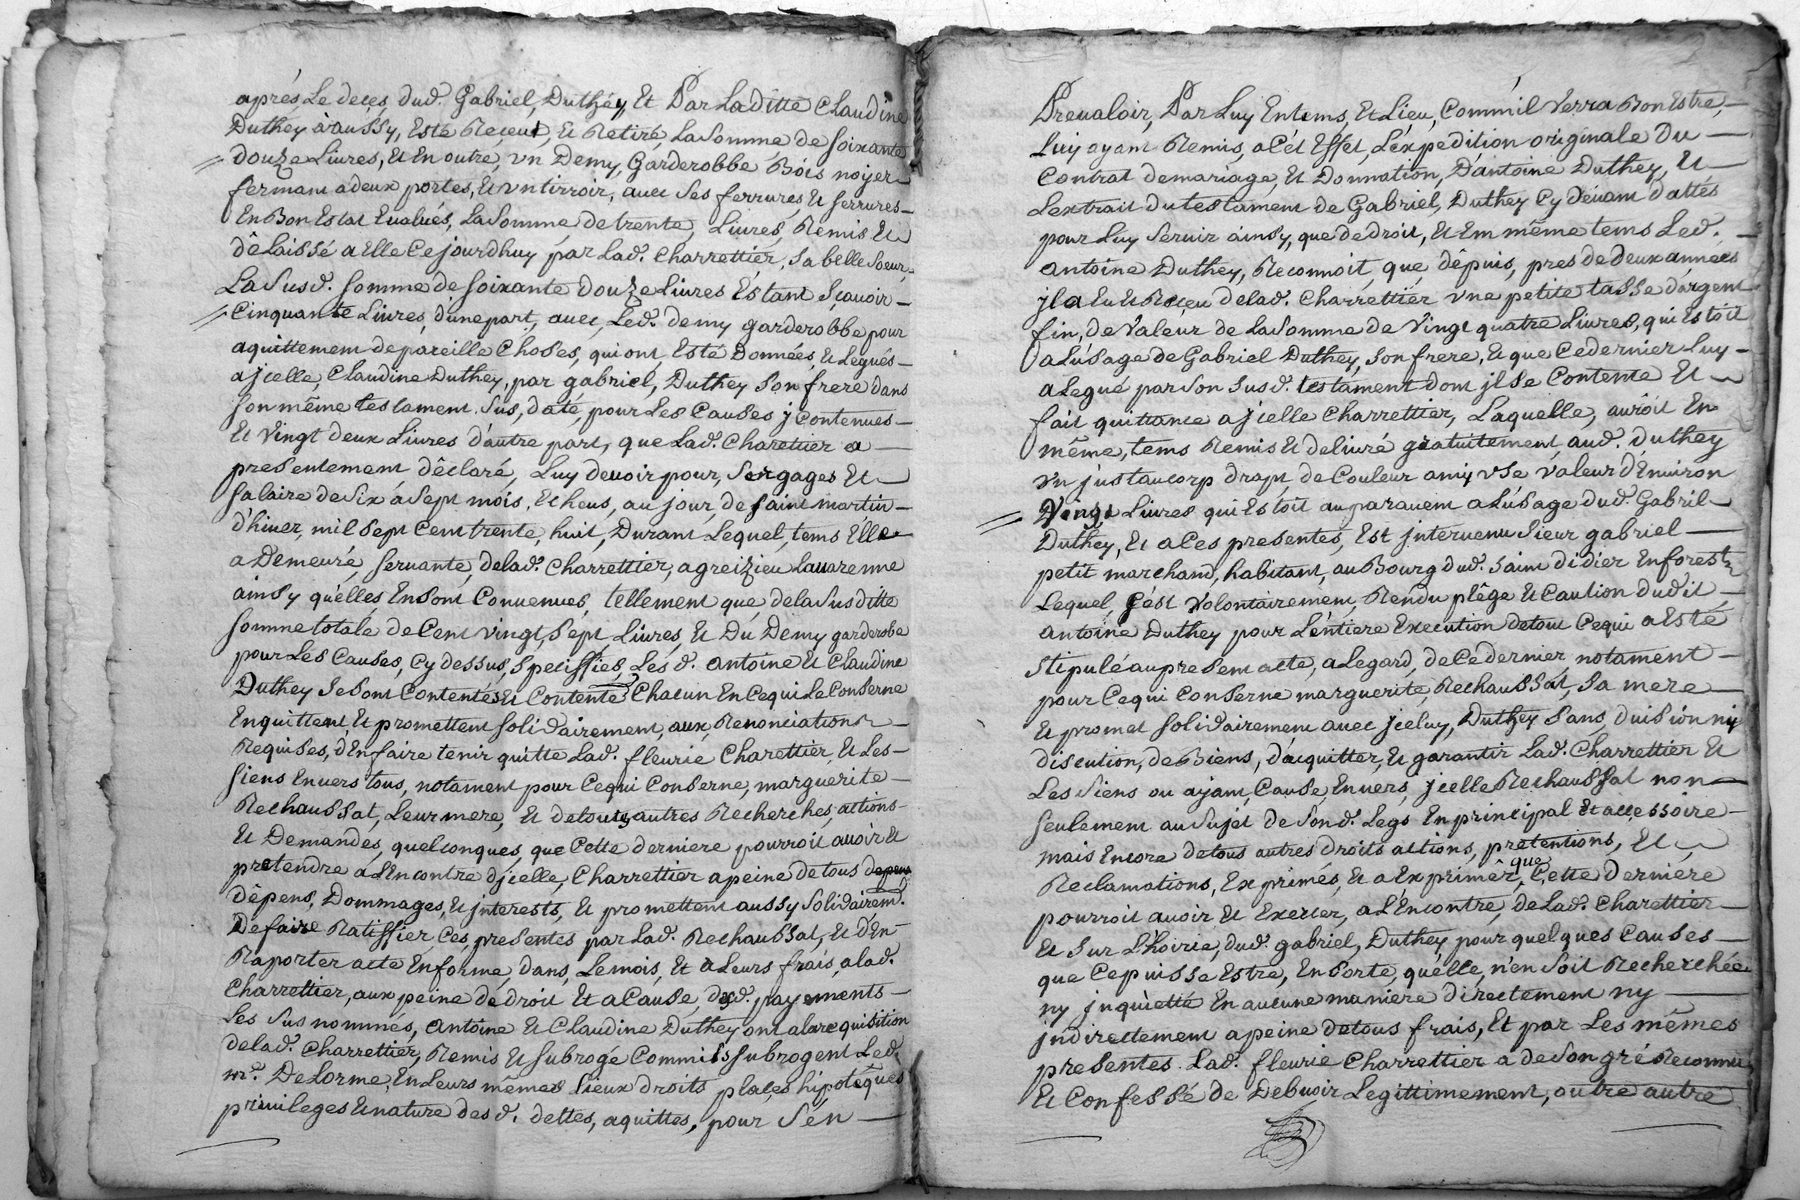 aprés Le deces, dud. Gabriel, Duthey, Et Par Laditte Claudine
Duthey à aussy, Esté Reçeut, Et Retiré, La Somme de Soixante
douze Livres, Et En outre, vn Demy, Garderobbe Bois noyer
fermant a deux portes, Et vn tirroir, auec Ses ferrures, Et Serrures
En Bon Estat Eualués, La Somme de trente, Livres, Remis Et
dêLaissé a Elle Cejourdhuy par Lad. Charrettier, Sa belle Soeur,
La Susd. Somme de Soixante douze Livres Estant Sçauoir
Cinquante Livres, dune part, auec, Led. demy garderobbe pour
aquittement de pareille Choses, qui ont, Esté Données, Et Legués
a jcelle, Claudine Duthey, par gabriel, Duthey Son frere dans
Son même testament Sus, daté, pour Les Causes, y Contenues
Et Vingt deux Livres d'autre part, que Lad. Charettier a
presentement dêclaré, Luy deuoir pour, Ses gages Et
Salaire de Six á Sept mois, Echeus, au jour, de saint martin
d'hiuer, mil Sept Cent trente, huit, Durant Lequel, tems Elle
a Demeuré, Seruante, delad. Charrettier, a greizieu Lauarenne
ainsy qu'elles, En Sont Conuenues, tellement que de la Susditte
Somme totale de Cent Vingt, Sept Livres, Et Du Demy garderobe
pour Les Causes, Cy dessus, Speciffiés, Les d. antoine Et Claudine
Duthey Se Sont Contentés Et Contente Chacun En Ce qui Le Conserne
En quittent, Et promettent Solidairement, aux Renonciations
Requises, d'En faire tenir quitte Lad. fleurie Charettier, Et Les
Siens Enuers tous, notament pour Cequi Conserne, marguerite
Rechaussat, Leur mere, Et de toutes autres Recherches, actions
Et Demandes, quelconques, que Cette derniere pourroit auoir Et
pretendre a L'Encontre djcelle, Charrettier a peine de tous depens
dêpens, Dommages, Et jnterests, Et promettent aussy Solidairem.t
De faire Ratiffier Ces, presentes par Lad. Rechaussat, Et d'En
Raporter acte En forme, dans, Le mois, Et a Leurs frais, a lad.
Charrettier, aux peine de droit Et a Cause, desd. payements
Les Sus nommés, antoine Et Claudine Duthey ont a La requisition
delad. Charrettier, Remis Et Subrogé Comm'ils Subrogent Led.
m.e DeLorme, En Leurs mêmes Lieux droits places hipotêques
priuileges Et nature des d. dettes, aquittés, pour S'en
Preualoir, Par Luy En tems, Et Lieu, Comm'il Verra Bon Estre,
Luy ayant Remis, a Cét Effet, L'éxpedition originale Du
Contrat de mariage, Et Donnation, D'antoine Duthey, Et
L'extrait du testament de Gabriel, Duthey Cy Déuant dattés
pour Luy Seruir ainsy, que de droit, Et En même tems Led.
antoine Duthey, Reconnoit, que, dépuis, pres de deux années
jl a Eu Et Reçeu delad. Charrettier vne petite tasse d'argent
fin, de Valeur de La Somme de Vingt quatre Livres, qui Estoit
a L'úsage de Gabriel Duthey, Son frere, Et que Ce dernier Luy
a Legué par Son Susd. testament dont jl Se Contente Et
fait quittance a jcelle Charrettier, Laquelle, auroit En
même, tems Remis Et deliuré gratuitement, aud. duthey
vn justaucorp drapt de Couleur amy vse Valeur d'Enuiron
Vingt Livres qui Estoit auparauent a L'úsage dud. Gabriel
Duthey, Et a Ces presentes, Est jnteruenu Sieur gabriel
petit marchand, habitant, au Bourg dud. Saint didier En forest
Lequel, S'ést Volontairement, Rendu plêge Et Caution dudit
antoine Duthey pour L'entiere Execution de tout Cequi a Esté
Stipulé au present acte, a L'egard, de Ce dernier notament
pour Cequi Conserne marguerite, Rechaussat, Sa mere
Et promet Solidairement auec jceluy, Duthey Sans, diuision ny
discution, de Biens, d'acquitter, Et garantir Lad. Charrettier Et
Les Siens ou ayant, Cause, Enuers, jcelle Rechaussat non
Seulement au Sujet de Sond. Legs En principal Et accessoire
mais Encore de tous autres droits actions, pretentions, Et
Reclamations, Exprimés, Et a Exprimêr, que Cette derniere
pourroit auoir Et Exercer, a L'Encontre, de Lad. Charettier
Et Sur L'hoirie, dud. gabriel, Duthey pour quelques Causes
que Cepuisse Estre, En Sorte, quélle, n'en Soit Recherchée
ny jnquiettée En aucune maniere directement ny
jndirectement a peine de tous frais, Et par Les mêmes
presentes Lad. fleurie Charrettier a de Son gré Reconnu
Et Confessé de Debuoir Legittimement, outre autre